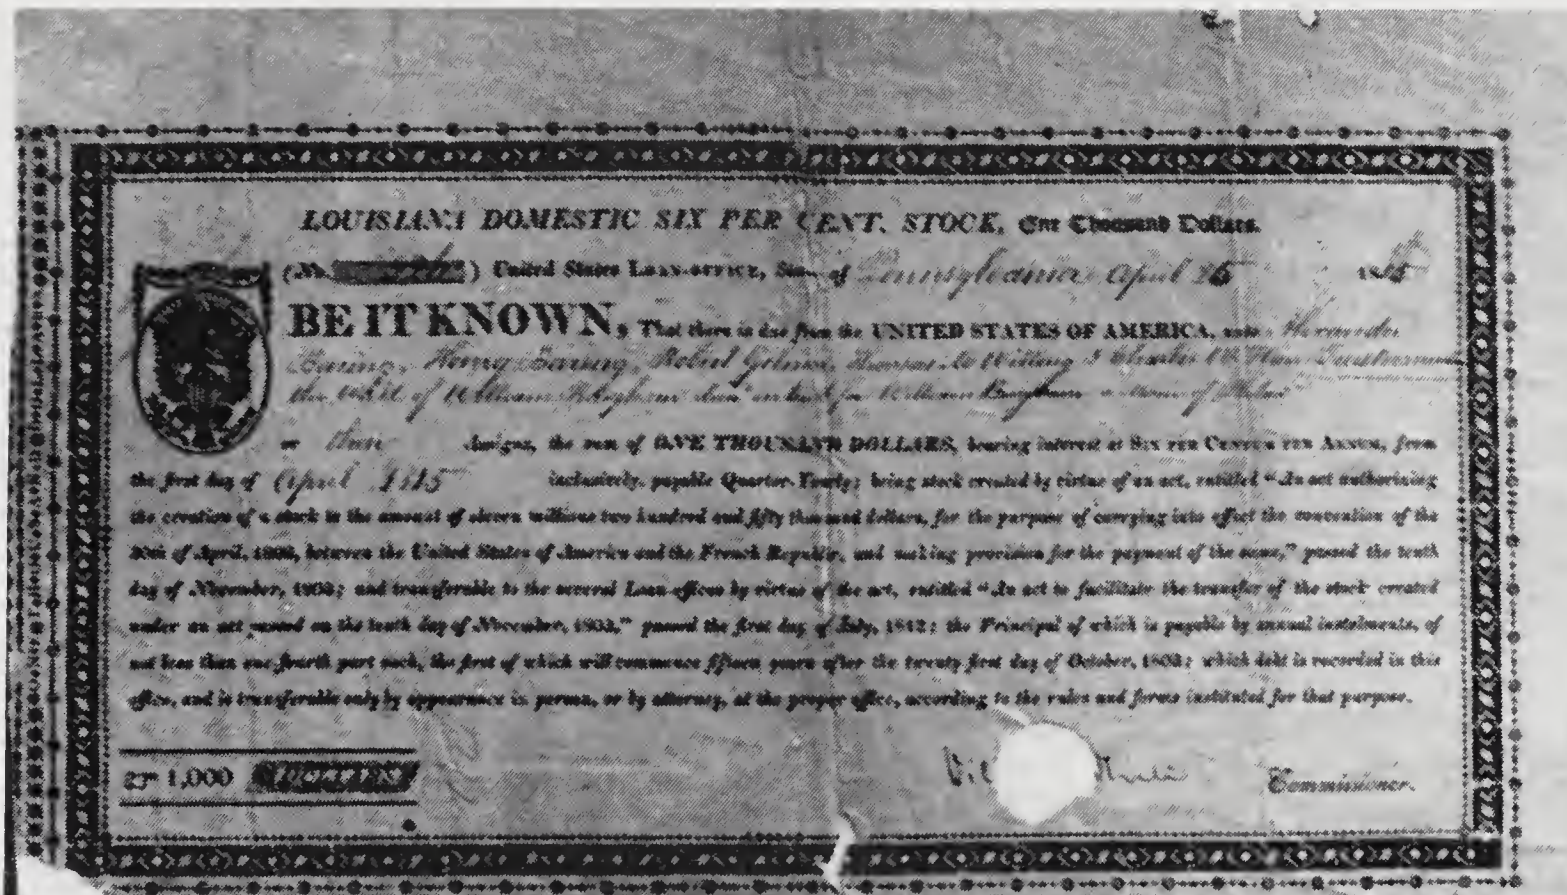 LOUISIANA DOMESTIC SIX PER CENT. STOCK, One Thousand Dollars.
(No. ) United States LOAN-OFFICE, State of Pennsylvania April 15 1815
BE IT KNOWN, That there is due from the UNITED STATES OF AMERICA, unto
Baring, Henry Baring, Robert Gilmor, Thomas Willing & Charles Trustees
the Will of William Bingham in trust for William Bingham
or their Assigns, the sum of ONE THOUSAND DOLLARS, bearing interest at SIX PER CENTUM PER ANNUM, from
the first day of April 1815 inclusively, payable Quarter-Yearly; being stock created by virtue of an act, entitled "An act authorising
the creation of a stock to the amount of eleven millions two hundred and fifty thousand dollars, for the purpose of carrying into effect the convention of the
30th of April, 1803, between the United States of America and the French Republic, and making provision for the payment of the same," passed the tenth
day of November, 1803; and transferable to the several Loan-offices by virtue of the act, entitled "An act to facilitate the transfer of the stock created
under an act passed on the tenth day of November, 1803," passed the first day of July, 1812; the Principal of which is payable by annual instalments, of
not less than one fourth part each, the first of which will commence fifteen years after the twenty first day of October, 1803; which debt is recorded in this
office, and is transferable only by appearance in person, or by attorney, at the proper office, according to the rules and forms instituted for that purpose.
1,000 DOLLARS
Commissioner.